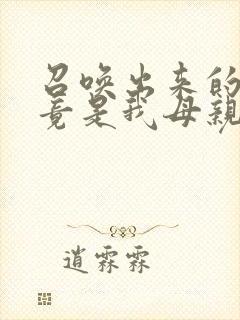 召唤出来的
竟是我母親
逍霖霖